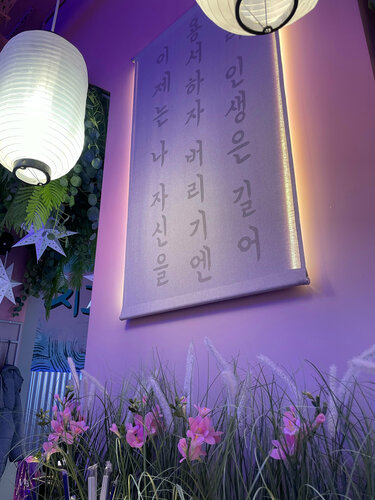 이제는 나 자신을
용서하자 버리기엔
인생은 길어